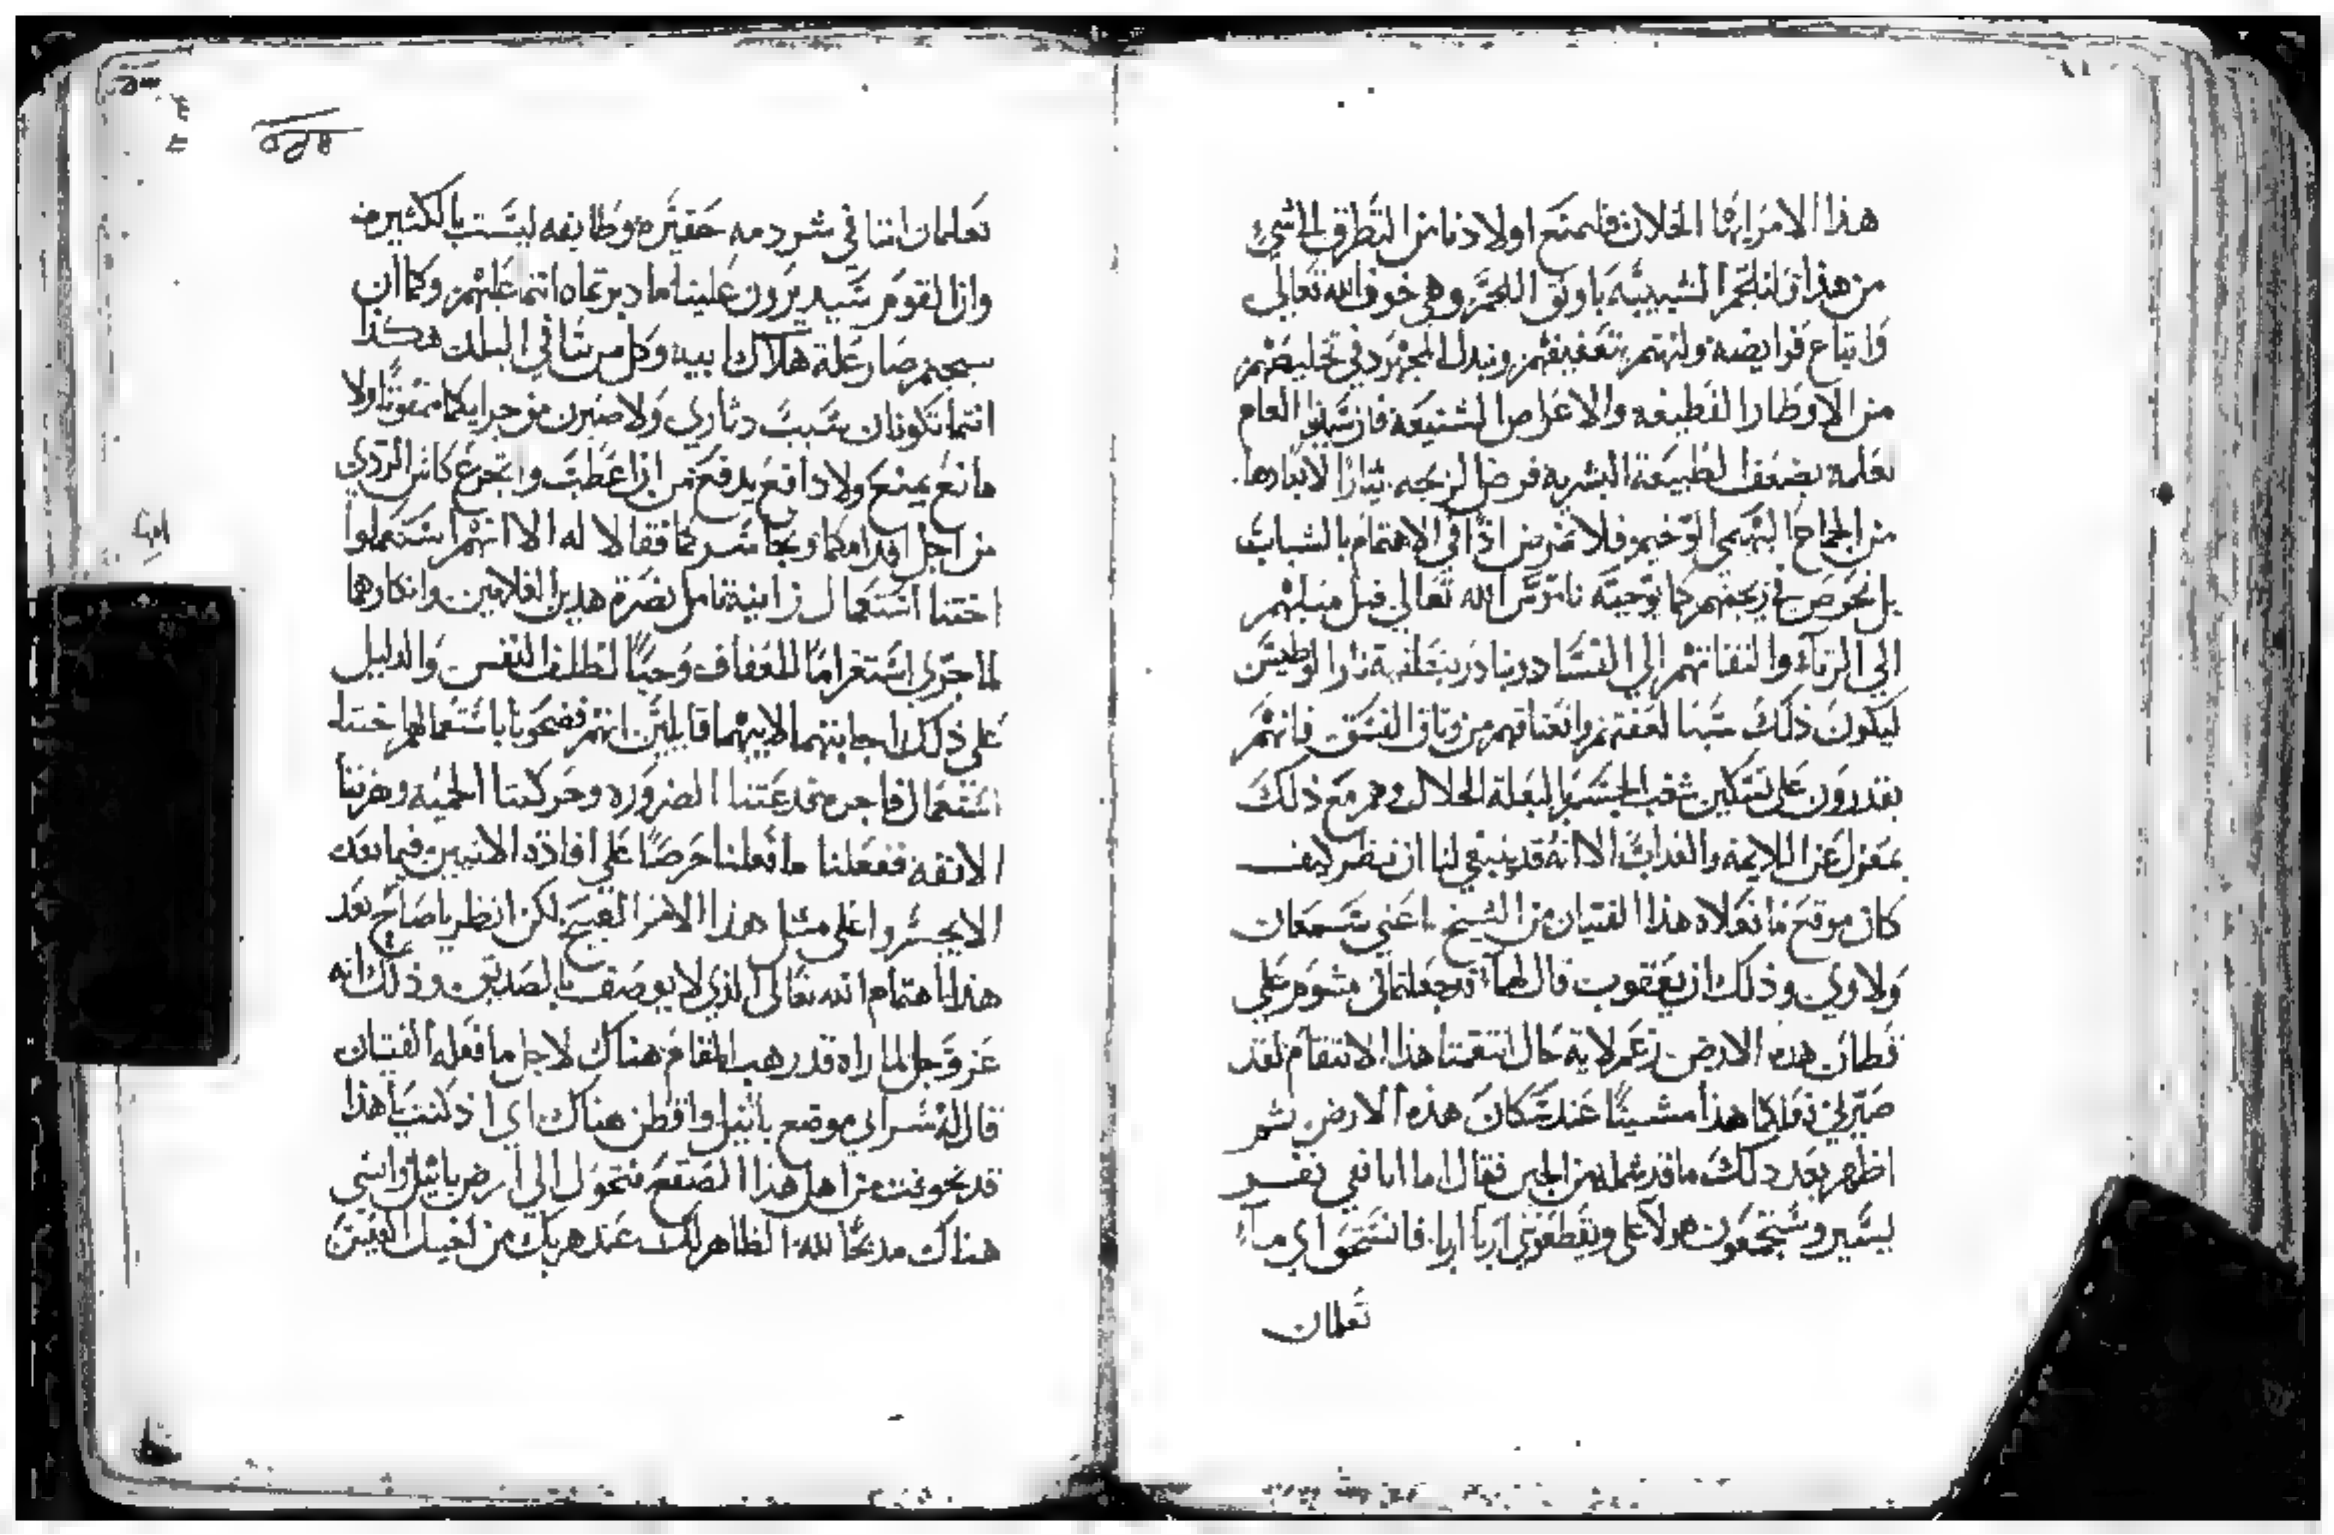 هذا الامر ايها الخلان فليمنع اولادنا من التطرق الى شي
من هذا ولنلجم الشبيبه باوثق اللجم وهي خوف الله تعالى
واتباع فرايضه ولنهتم بتعفيفهم ونبذل المجهود في تخليصهم
من الاوطار الفظيعه والاغراض الشنيعه فان سيدنا العام
بعلمه بضعف الطبيعة البشريه فوض الزيجه ايثارًا لابعادها
من الجماح البهيمي الوخيم فلا نمرض اذًا في الاهتمام بالشباب
بل نحرص في زيجتهم كما توجبه ناموس الله تعالى قبل ميلهم
الى الزناء والتفاتهم الى الفساد
ليكون ذلك سببا لعفتهم وانعتاقهم من وثاق الفسق فانهم
يقدرون على تسكين شغب الجسم بالبعلة الحلال وهم مع ذلك
بمعزل عن اللايمه والعذاب الا انه قد ينبغي لنا ان ننظر كيف
كان موقع ما فعلاه هذا الفتيان من الشيخ اعني شمعان
ولاوي وذلك ان يعقوب قال لهما قد جعلتماني مشوم على
قطان هذه الارض زعم لاية حال انتقمتا هذا الانتقام لقد
صير لي فعلكما هذا مشينًا عند سكان هذه الارض ثم
اظهر بعد ذلك ما قد شمله من الجبن فقال اما انا ففي نفر
يسير وسيجمعون هولاء علي ويقطعونني اربا اربا
تعلمان
تعلمان اننا في شردمه حقيره وطايفه ليست بالكثير منه
وان القوم سيديرون علينا ما دبرتماه انتما عليهم وكما ان
سجيم صار علة هلاك ابيه وكل من نشا في البلد هكذا
انتما تكونان سبب دثاري ولاصيرن من جرايكما ممقوتا ولا
مانع يمنع ولا دافع يدفع من ان اعطب واتجرع كاس الردى
من اجل اقدامكما وتجاسركما فقالا له الا انهم استعملوا
اختنا استعمال زانية تامل نصرة هذين الغلامين وانكارهما
لما جرى استغرامًا للعفاف وحبًا لظلف النفس والدليل
على ذلك اجابتهما لابيهما قايلين انهم فضحونا باستعمالهم اختنا
استعمال فاجره فدعتنا الضروره وحركتنا الحميه وهزتنا
الانفه ففعلنا ما فعلنا حرصًا على افادة الاتيين فيما بعد
الا يجسروا على مثل هذا الامر القبيح لكن انظر يا صاح بعد
هذا اهتمام الله تعالى الذي لا يوصف بالصديق وذلك انه
عز وجل لما راه قد رهب المقام هناك لاجل ما فعله الفتيان
قال له سر الى موضع باثيل واقطن هناك اي اذ كنت يا هذا
قد تخوفت من اهل هذا الصقع فتحول الى ارض باثيل وابني
هناك مدبحًا لله الظاهر لك عند هربك من اخيك العيس